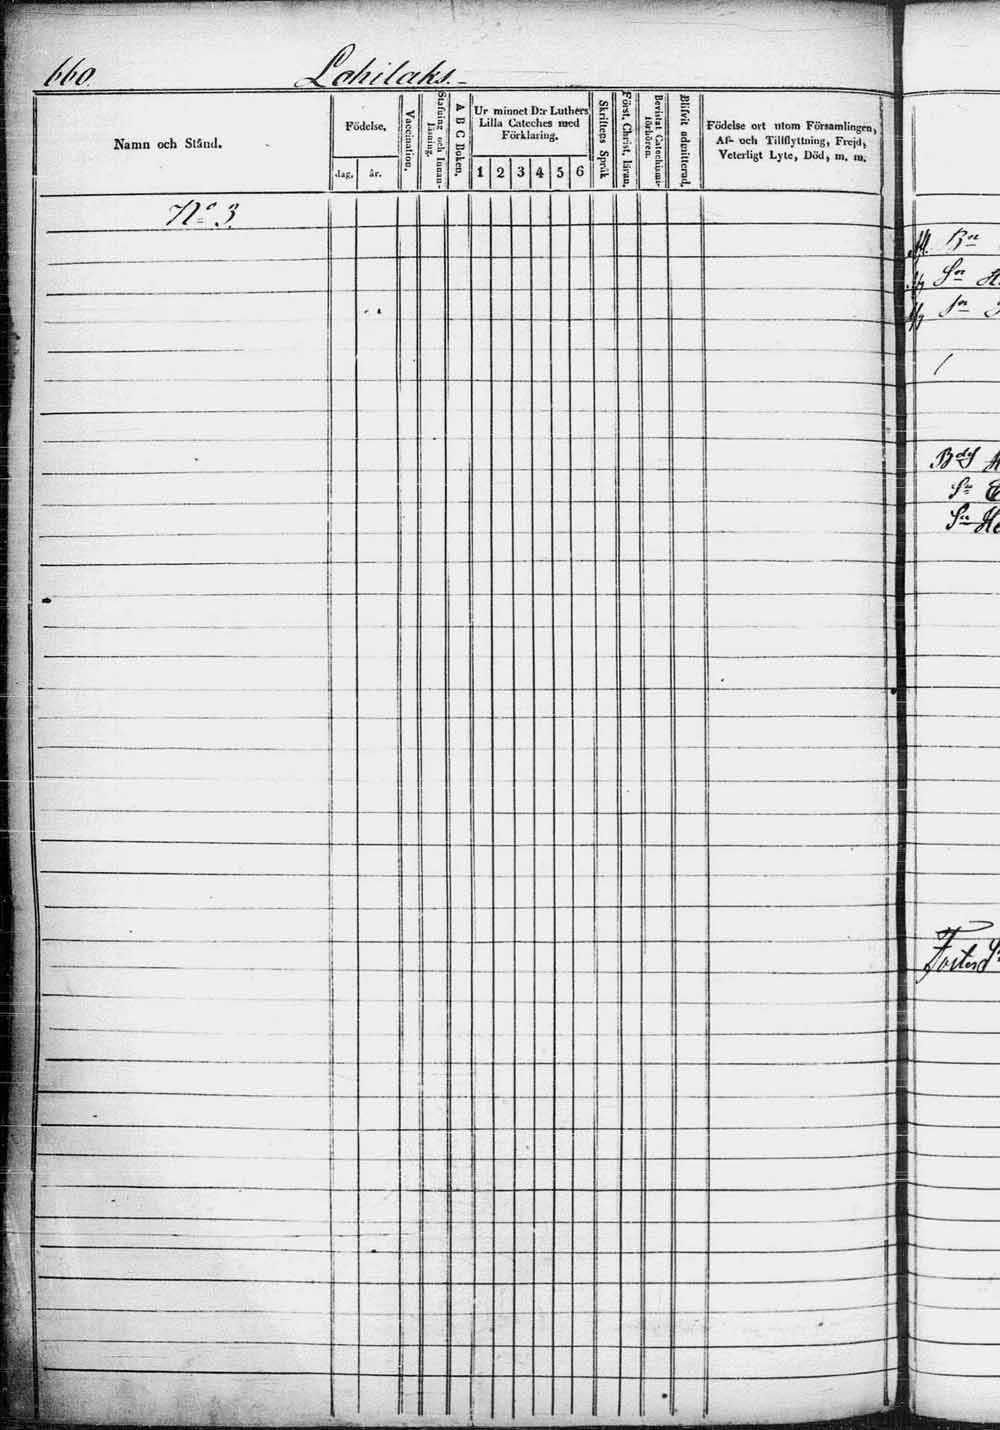 660. Lahilaks.
Namn och Stånd.
Födelse,
dag, år.
Vaccination.
Stafning och Innan-
läsning.
A B C Boken.
Ur minnet D:r Luthers
Lilla Cateches med
Förklaring.
1 2 3 4 5 6
Skriftens Språk
Först. Christ. läran.
Bevistat Catechismi-
förhören.
Blifvit admitterad.
Födelse ort utom Församlingen,
Af- och Tillflyttning, Frejd,
Veterligt Lyte, Död, m. m.
No 3.
Bn
Sn
Sn
Sn
Sn
Foster